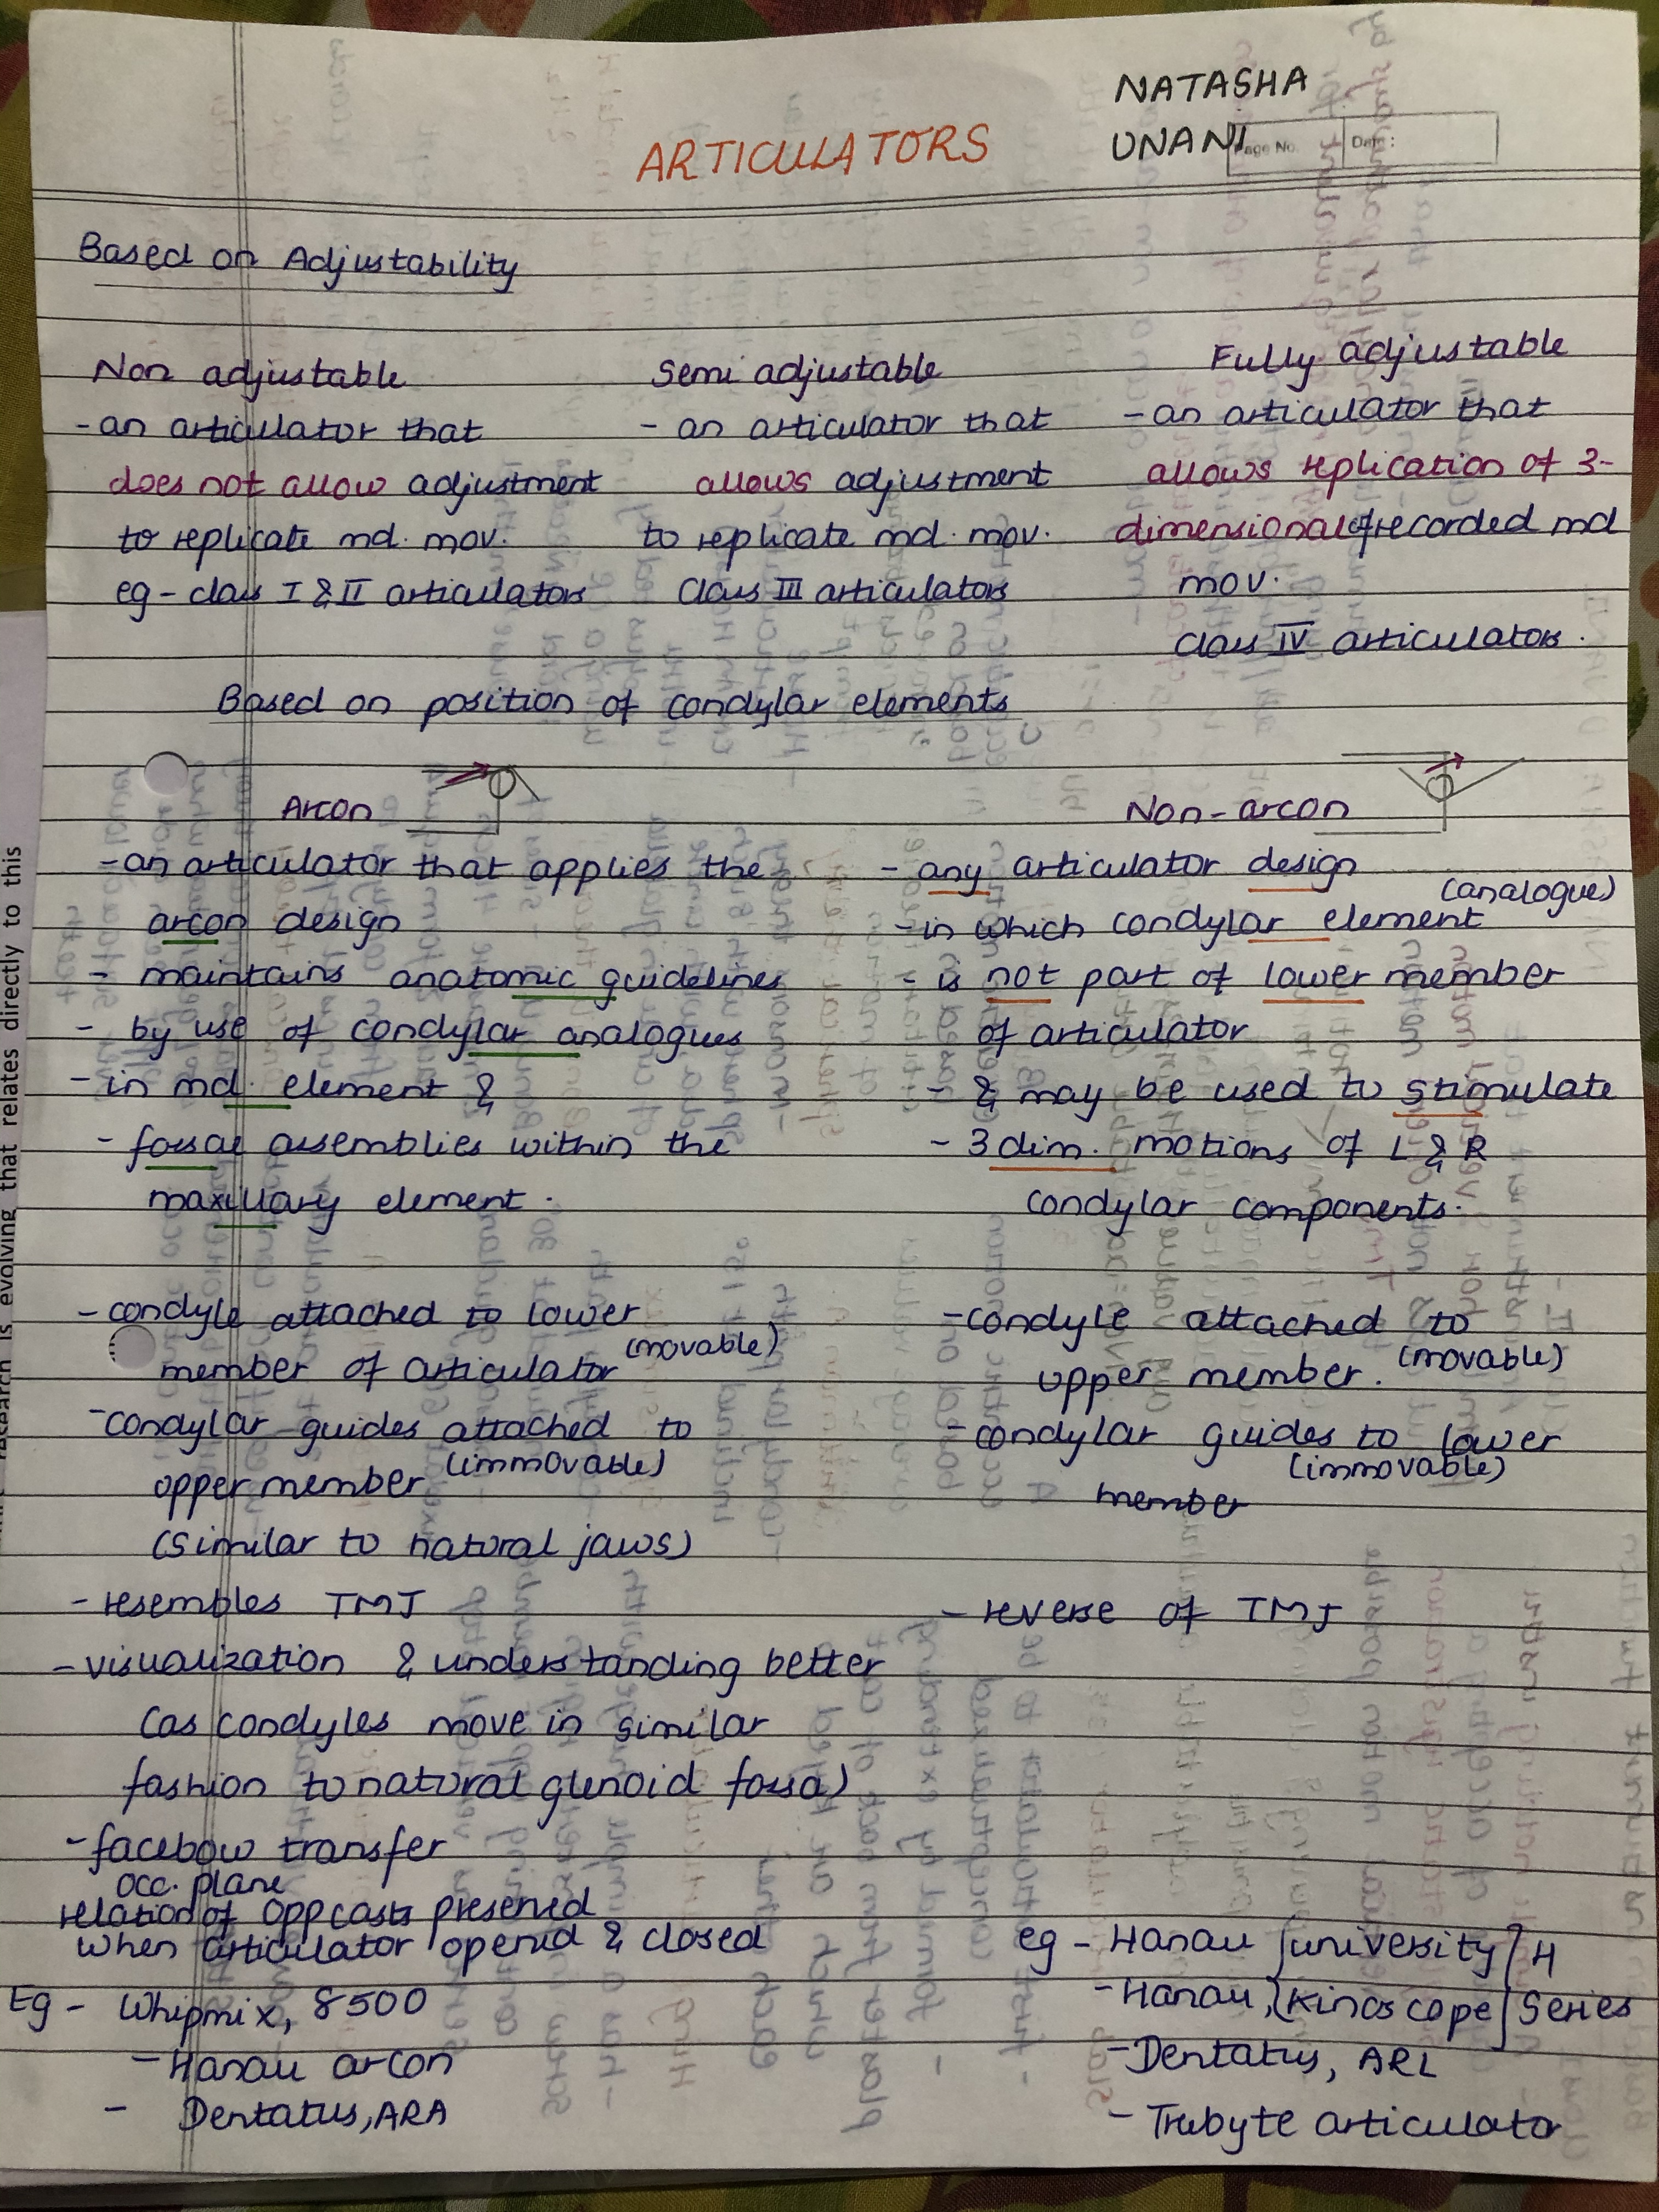 NATASHA
UNANI
Page No. Date :
ARTICULATORS
Based on Adjustability
Non adjustable
- an articulator that
does not allow adjustment
to replicate md. mov.
eg - class I & II articulators
Semi adjustable
- an articulator that
allows adjustment
to replicate md. mov.
Class III articulators
Fully adjustable
- an articulator that
allows replication of 3-
dimensional of recorded md
mov.
Class IV articulators.
Based on position of condylar elements
Arcon
- an articulator that applies the
arcon design
- maintains anatomic guidelines
- by use of condylar analogues
- in md. element &
- fossae assemblies within the
maxillary element.
- condyle attached to lower
member of articulator (movable)
- condylar guides attached to
upper member (immovable)
(similar to natural jaws)
- resembles TMJ
- visualization & understanding better
(as condyles move in similar
fashion to natural glenoid fossa)
- facebow transfer
occ. plane
relation of opp casts preserved
when articulator opened & closed
Eg - Whipmix, 8500
- Hanau arcon
- Dentatus, ARA
Non-arcon
- any articulator design
(analogue)
- in which condylar element
- is not part of lower member
of articulator
- & may be used to stimulate
- 3 dim. motions of L & R
condylar components.
- condyle attached to
upper member. (movable)
- condylar guides to lower
(immovable)
member
- reverse of TMJ
eg - Hanau [university] H
- Hanau, {Kinoscope] Series
- Dentatus, ARL
- Trubyte articulator
research is evolving that relates directly to this